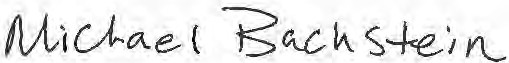 Michael Bachstein